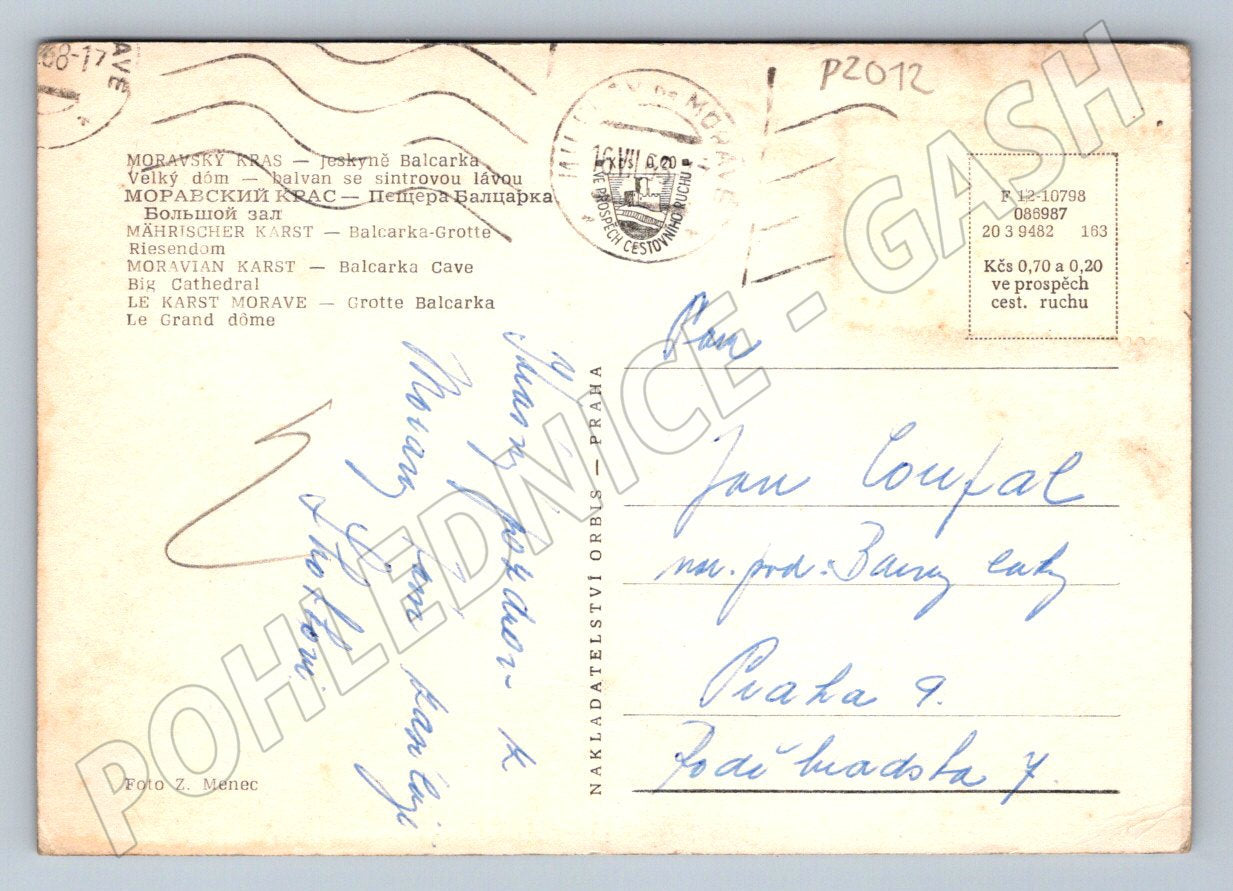 68-17
AVE
P2012
NA MORAVĚ
16.VII
Kčs 0,20
VE PROSPĚCH CESTOVNÍHO RUCHU
MORAVSKÝ KRAS — jeskyně Balcarka
Velký dóm — balvan se sintrovou lávou
МОРАВСКИЙ КРАС — Пещера Балцарка
Большой зал
MÄHRISCHER KARST — Balcarka-Grotte
Riesendom
MORAVIAN KARST — Balcarka Cave
Big Cathedral
LE KARST MORAVE — Grotte Balcarka
Le Grand dôme
F 12-10798
086987
20 3 9482 163
Kčs 0,70 a 0,20
ve prospěch
cest. ruchu
Krásný pozdrav z
Moravy Vám zasílají
NAKLADATELSTVÍ ORBIS — PRAHA
Pan
Jan Coufal
nár. pod. Barvy laky
Praha 9.
Poděbradská 7
Foto Z. Menec
POHLEDNICE - GASH